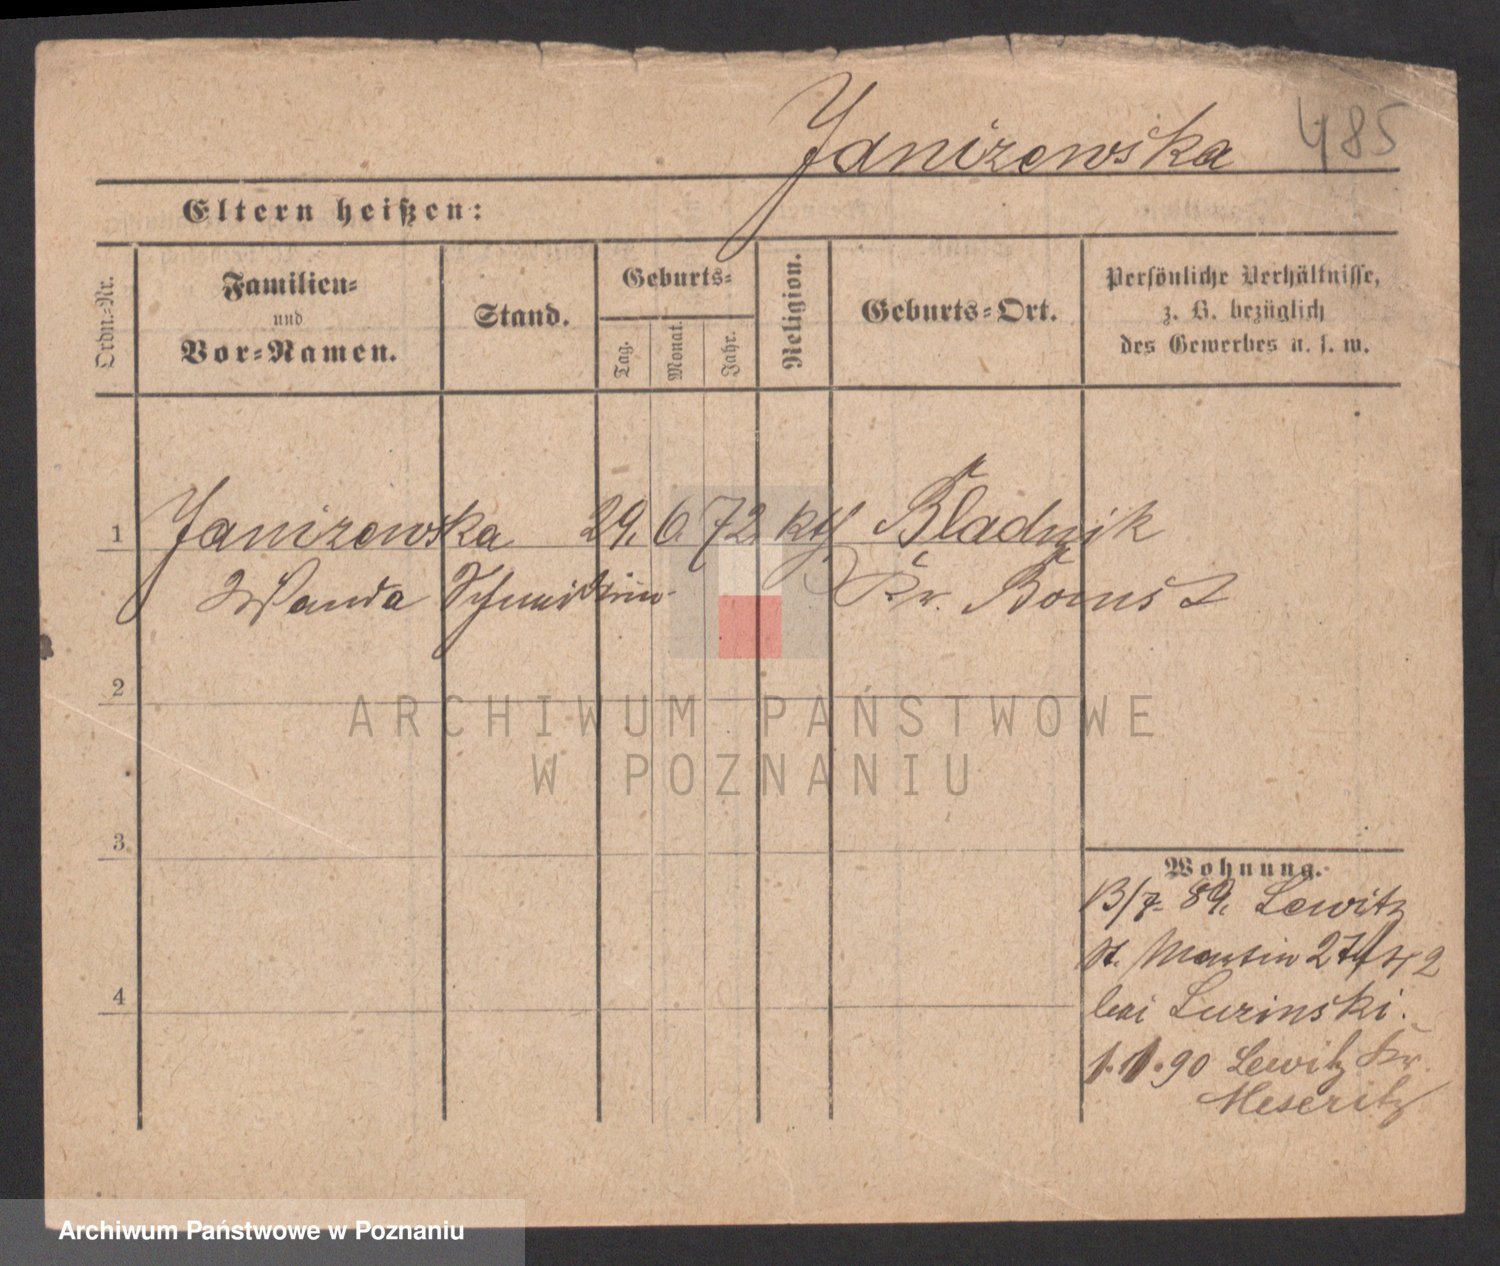 Janizewska 485
Eltern heißen:
Ordn.-Nr.
Familien-
und
Vor-Namen.
Stand.
Geburts-
Tag.
Monat.
Jahr.
Religion.
Geburts-Ort.
Persönliche Verhältnisse,
z. B. bezüglich
des Gewerbes u. s. w.
1 Janizewska 29. 6. 72. kth Bladzik
Wanda Kr. Bomst
2
3
4
Wohnung.
13/7. 89. Lewitz
St. Martin
bei Luzinski.
1.1.90 Lewitz Kr.
Meseritz
ARCHIWUM PAŃSTWOWE
W POZNANIU
Archiwum Państwowe w Poznaniu